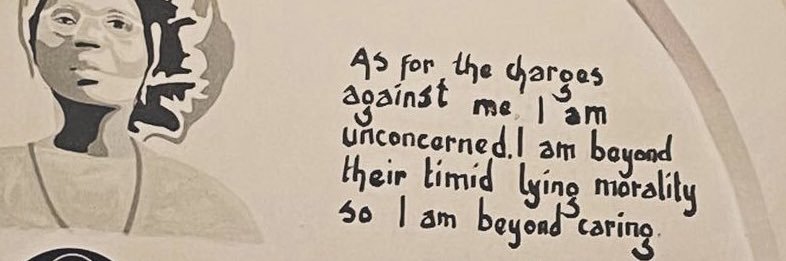 As for the charges
against me, I am
unconcerned. I am beyond
their timid lying morality
so I am beyond caring.